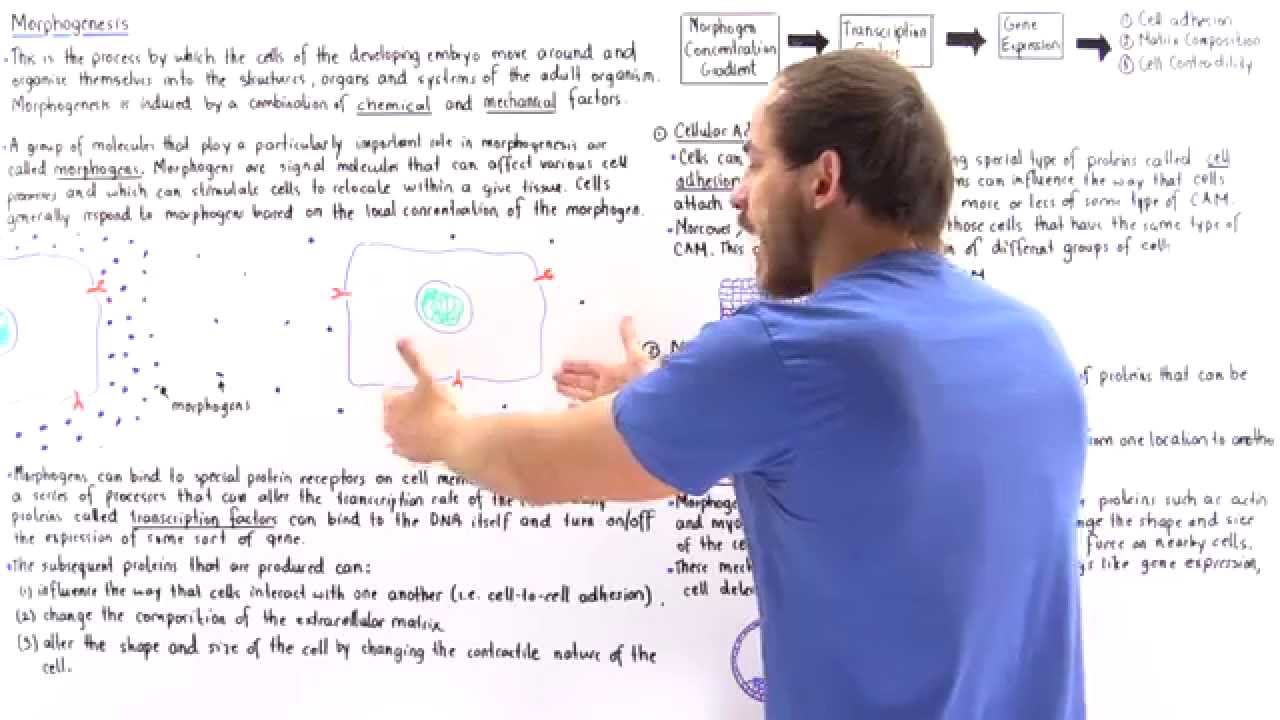 Morphogenesis
• This is the process by which the cells of the developing embryo move around and
organize themselves into the structures, organs and systems of the adult organism.
Morphogenesis is induced by a combination of chemical and mechanical factors.
• A group of molecules that play a particularly important role in morphogenesis are
called morphogens. Morphogens are signal molecules that can affect various cell
processes and which can stimulate cells to relocate within a give tissue. Cells
generally respond to morphogens based on the local concentration of the morphogen.
morphogens
• Morphogens can bind to special protein receptors on cell
a series of processes that can alter the transcription rate of the
proteins called transcription factors can bind to the DNA itself and turn on/off
the expression of some sort of gene.
• The subsequent proteins that are produced can:
(1) influence the way that cells interact with one another (i.e. cell-to-cell adhesion),
(2) change the composition of the extracellular matrix
(3) alter the shape and size of the cell by changing the contractile nature of the
cell.
Morphogen
Concentration
Gradient
Transcription
Gene
Expression
① Cell adhesion
② Matrix Composition
③ Cell Contractility
① Cellular
• Cells can special type of proteins called cell
adhesion can influence the way that cells
attach more or less of some type of CAM.
• Moreover, those cells that have the same type of
CAM. This of different groups of cells
②
of proteins that can be
from one location to another
• proteins such as actin
and the shape and size
of the force on nearby cells.
• These like gene expression,
cell